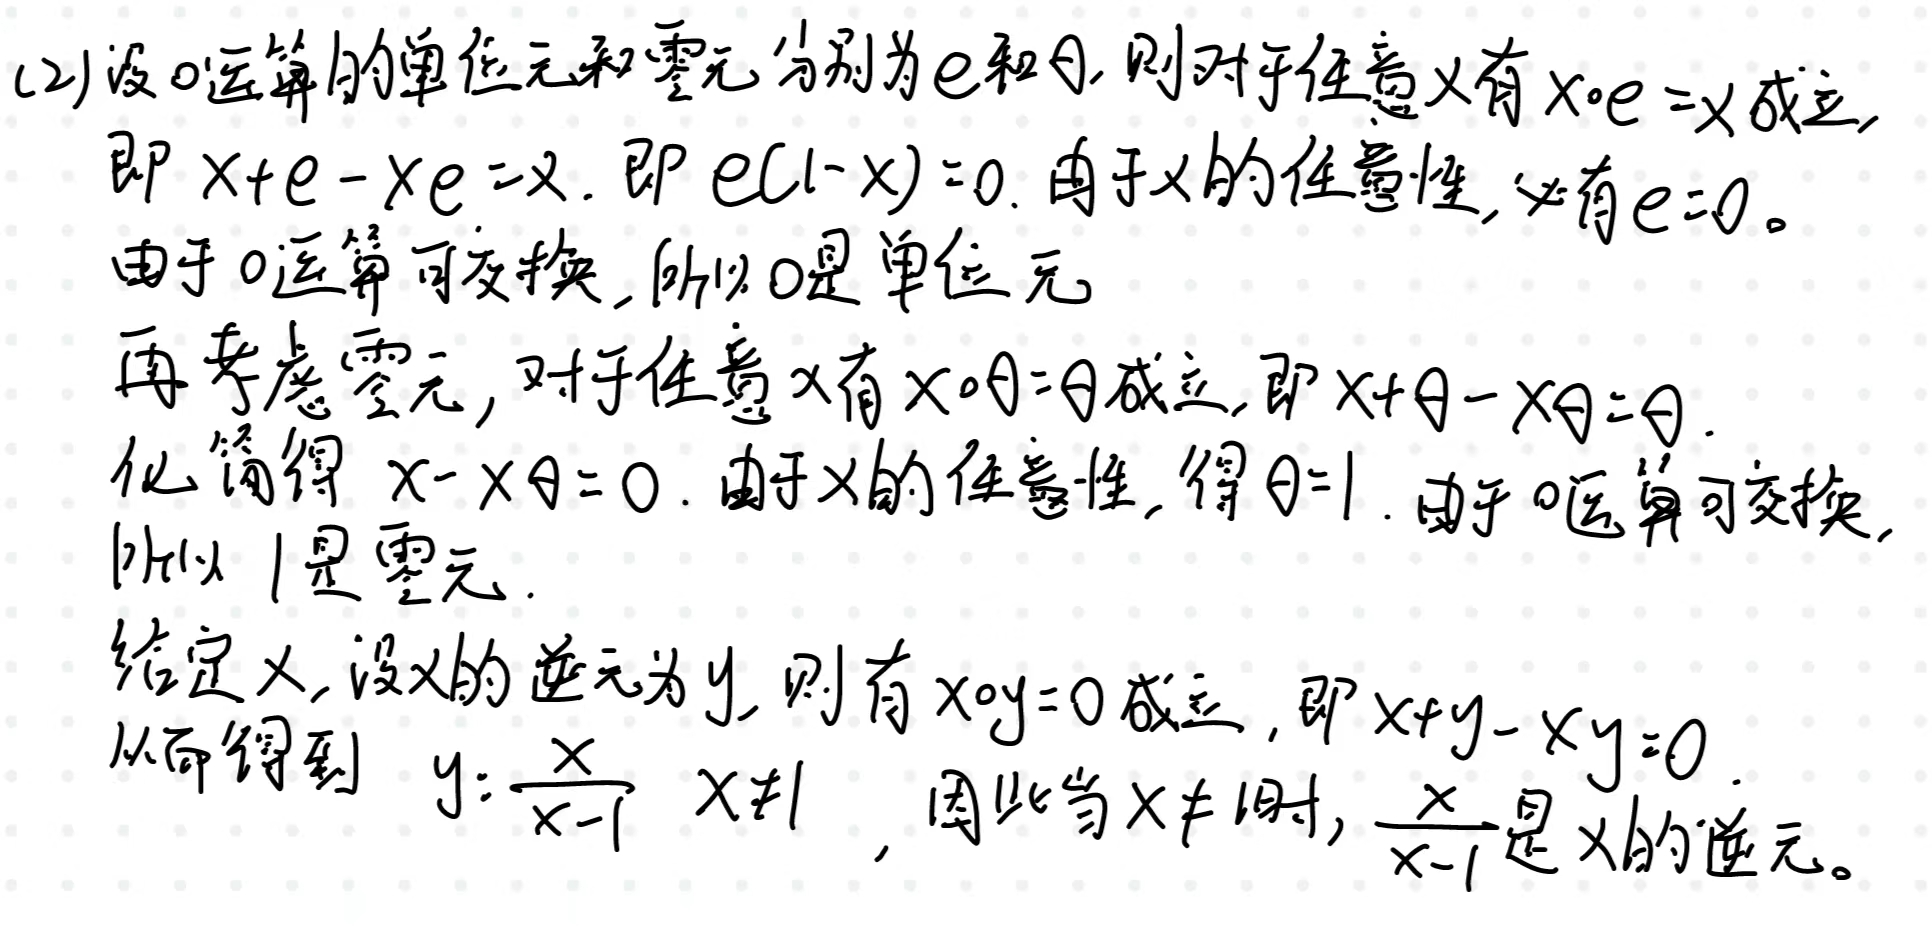 (2) 设∘运算的单位元和零元分别为e和θ, 则对于任意x有 x∘e=x成立,
即 x+e-xe=x. 即 e(1-x)=0. 由于x的任意性, 必有e=0。
由于∘运算可交换, 所以0是单位元
再考虑零元, 对于任意x有x∘θ=θ成立, 即 x+θ-xθ=θ.
化简得 x-xθ=0. 由于x的任意性, 得θ=1. 由于∘运算可交换,
所以 1是零元.
给定x, 设x的逆元为y, 则有x∘y=0成立, 即x+y-xy=0.
从而得到 y=x/(x-1) x≠1 , 因此当x≠1时, x/(x-1)是x的逆元。